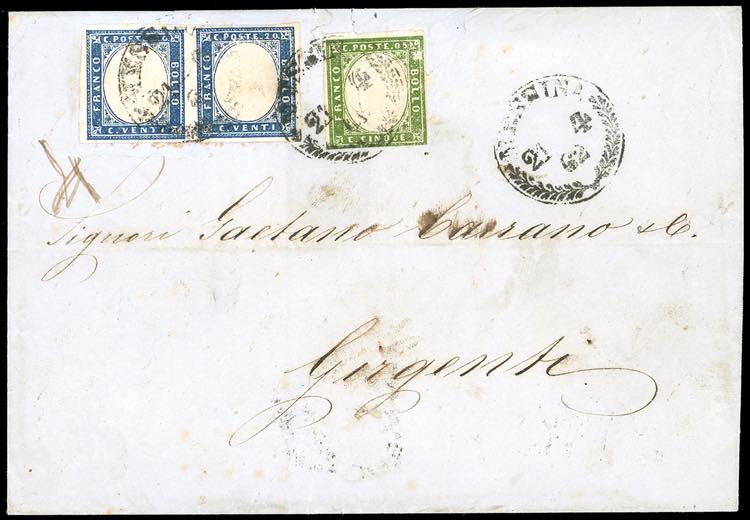 C. POSTE. 20.
FRANCO BOLLO
C. VENTI
C. POSTE. 20.
FRANCO BOLLO
C. VENTI
C. POSTE. 05.
FRANCO BOLLO
C. CINQUE
4
62
Signori Gaetano Carrano & C.
Girgenti